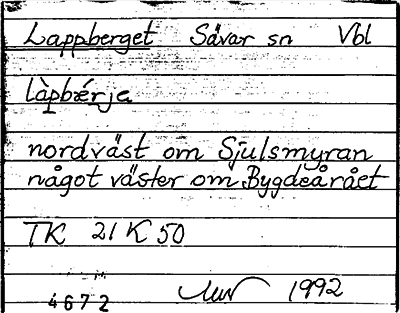 Lappberget Sävar sn Vbl
làpbǽrja
nordväst om Sjulsmyran
något väster om Bygdeårået
TK 21 K 50
1992
4672